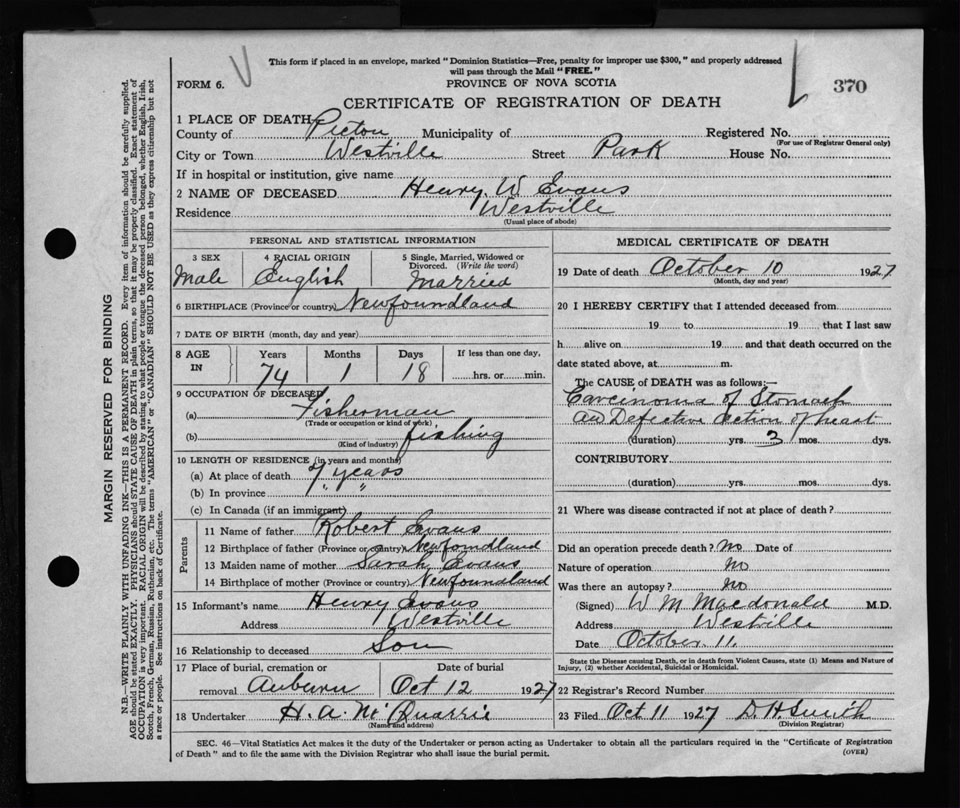 This form if placed in an envelope, marked "Dominion Statistics—Free, penalty for improper use $300," and properly addressed
will pass through the Mail "FREE."
FORM 6.
PROVINCE OF NOVA SCOTIA
370
CERTIFICATE OF REGISTRATION OF DEATH
1 PLACE OF DEATH
County of Pictou Municipality of Registered No.
(For use of Registrar General only)
City or Town Westville Street Park House No.
If in hospital or institution, give name
2 NAME OF DECEASED Henry W Evans
Residence Westville
(Usual place of abode)
PERSONAL AND STATISTICAL INFORMATION
3 SEX 4 RACIAL ORIGIN 5 Single, Married, Widowed or
Divorced. (Write the word)
Male English Married
6 BIRTHPLACE (Province or country) Newfoundland
7 DATE OF BIRTH (month, day and year)
8 AGE IN Years Months Days If less than one day,
74 1 18 hrs. or min.
9 OCCUPATION OF DECEASED
(a) Fisherman
(Trade or occupation or kind of work)
(b) fishing
(Kind of industry)
10 LENGTH OF RESIDENCE (in years and months)
(a) At place of death 7 years
(b) In province " "
(c) In Canada (if an immigrant)
Parents
11 Name of father Robert Evans
12 Birthplace of father (Province or country) Newfoundland
13 Maiden name of mother Sarah Evans
14 Birthplace of mother (Province or country) Newfoundland
15 Informant's name Henry Evans
Address Westville
16 Relationship to deceased Son
17 Place of burial, cremation or Date of burial
removal Auburn Oct 12 1927
18 Undertaker H. A. Mc Quarrie
(Name and address)
MEDICAL CERTIFICATE OF DEATH
19 Date of death October 10 1927
(Month, day and year)
20 I HEREBY CERTIFY that I attended deceased from
19 to 19 that I last saw
h alive on 19 and that death occurred on the
date stated above, at m.
The CAUSE of DEATH was as follows:—
Carcinoma of Stomach
and Defective action of heart
(duration) yrs. 3 mos. dys.
CONTRIBUTORY
(duration) yrs. mos. dys.
21 Where was disease contracted if not at place of death?
Did an operation precede death? No Date of
Nature of operation No
Was there an autopsy? No
(Signed) W M Macdonald M.D.
Address Westville
Date October 11.
State the Disease causing Death, or in death from Violent Causes, state (1) Means and Nature of
Injury, (2) whether Accidental, Suicidal or Homicidal.
22 Registrar's Record Number
23 Filed Oct 11 1927 D. H. Smith
(Division Registrar)
SEC. 46—Vital Statistics Act makes it the duty of the Undertaker or person acting as Undertaker to obtain all the particulars required in the "Certificate of Registration
of Death" and to file the same with the Division Registrar who shall issue the burial permit.
(OVER)
MARGIN RESERVED FOR BINDING
N.B.—WRITE PLAINLY WITH UNFADING INK—THIS IS A PERMANENT RECORD. Every item of information should be carefully supplied.
AGE should be stated EXACTLY. PHYSICIANS should STATE CAUSE OF DEATH in plain terms, so that it may be properly classified. Exact statement of
OCCUPATION is very important. RACIAL ORIGIN will be described by stating to what people or tongue the deceased person belonged, whether English, Irish,
Scotch, French, German, Russian, Ruthenian, etc. The terms "AMERICAN" or "CANADIAN" SHOULD NOT BE USED as they express citizenship but not
a race or people. See instructions on back of Certificate.